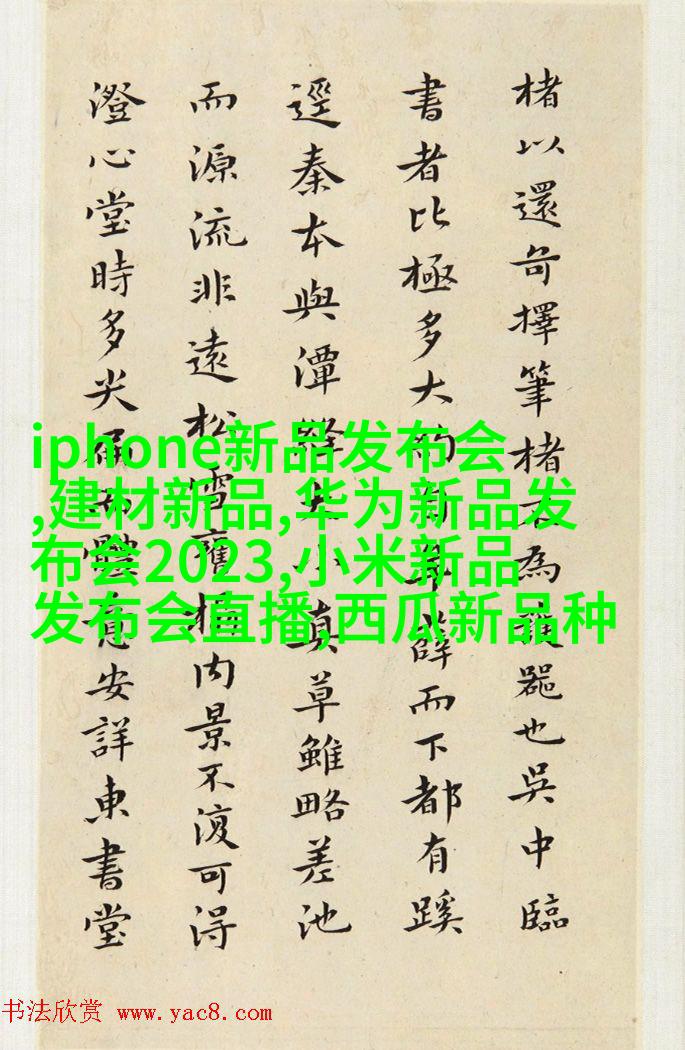 楮以還奇擇筆楮
為
器也吳中臨
書者比極多大
薜而下都有蹊
逕秦本與潭
真草雖略差池
而源流非遠松雪
内景不復可得
澄心堂時多尖
意安詳東書堂
iphone新品发布会
,建材新品,华为新品发
布会2023,小米新品
发布会直播,西瓜新品种
书法欣赏 www.yac8.com